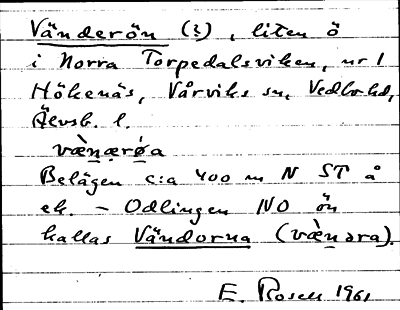 Vänderön (ξ), liten ö
i Norra Torpedalsviken, nr 1
Hökenäs, Vårviks sn, Vedbo hd,
Älvsb. l.
væ̀nærø̀a
Belägen c:a 400 m N ST å
ek. – Odlingen NO ön
kallas Vändorna (væ̀nɔra).
E. Rosell 1961